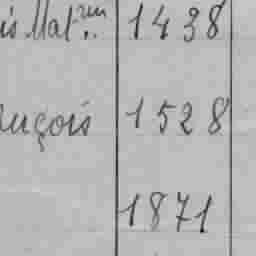 is Mat.rin 1438
ançois 1528
1871